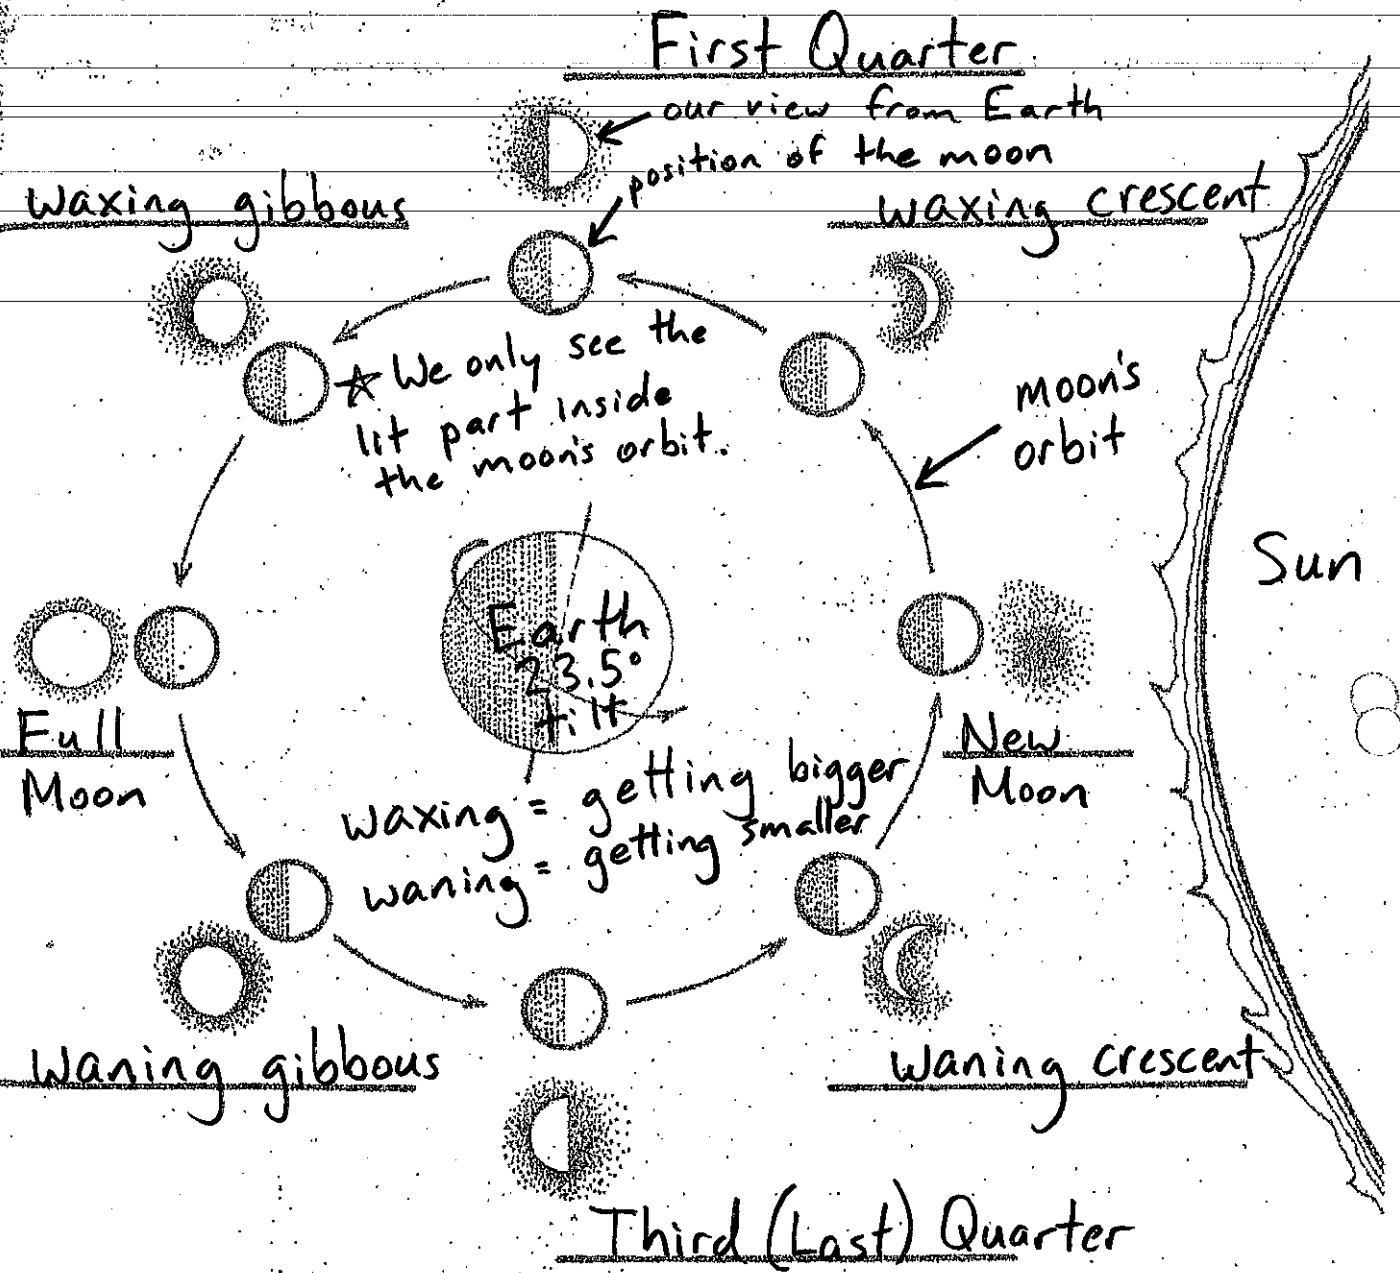 First Quarter
our view from Earth
position of the moon
waxing gibbous
waxing crescent
☆ We only see the
lit part inside
the moon's orbit.
moon's
orbit
Sun
Earth
23.5°
tilt
Full
Moon
New
Moon
waxing = getting bigger
waning = getting smaller
Waning gibbous
waning crescent
Third (Last) Quarter